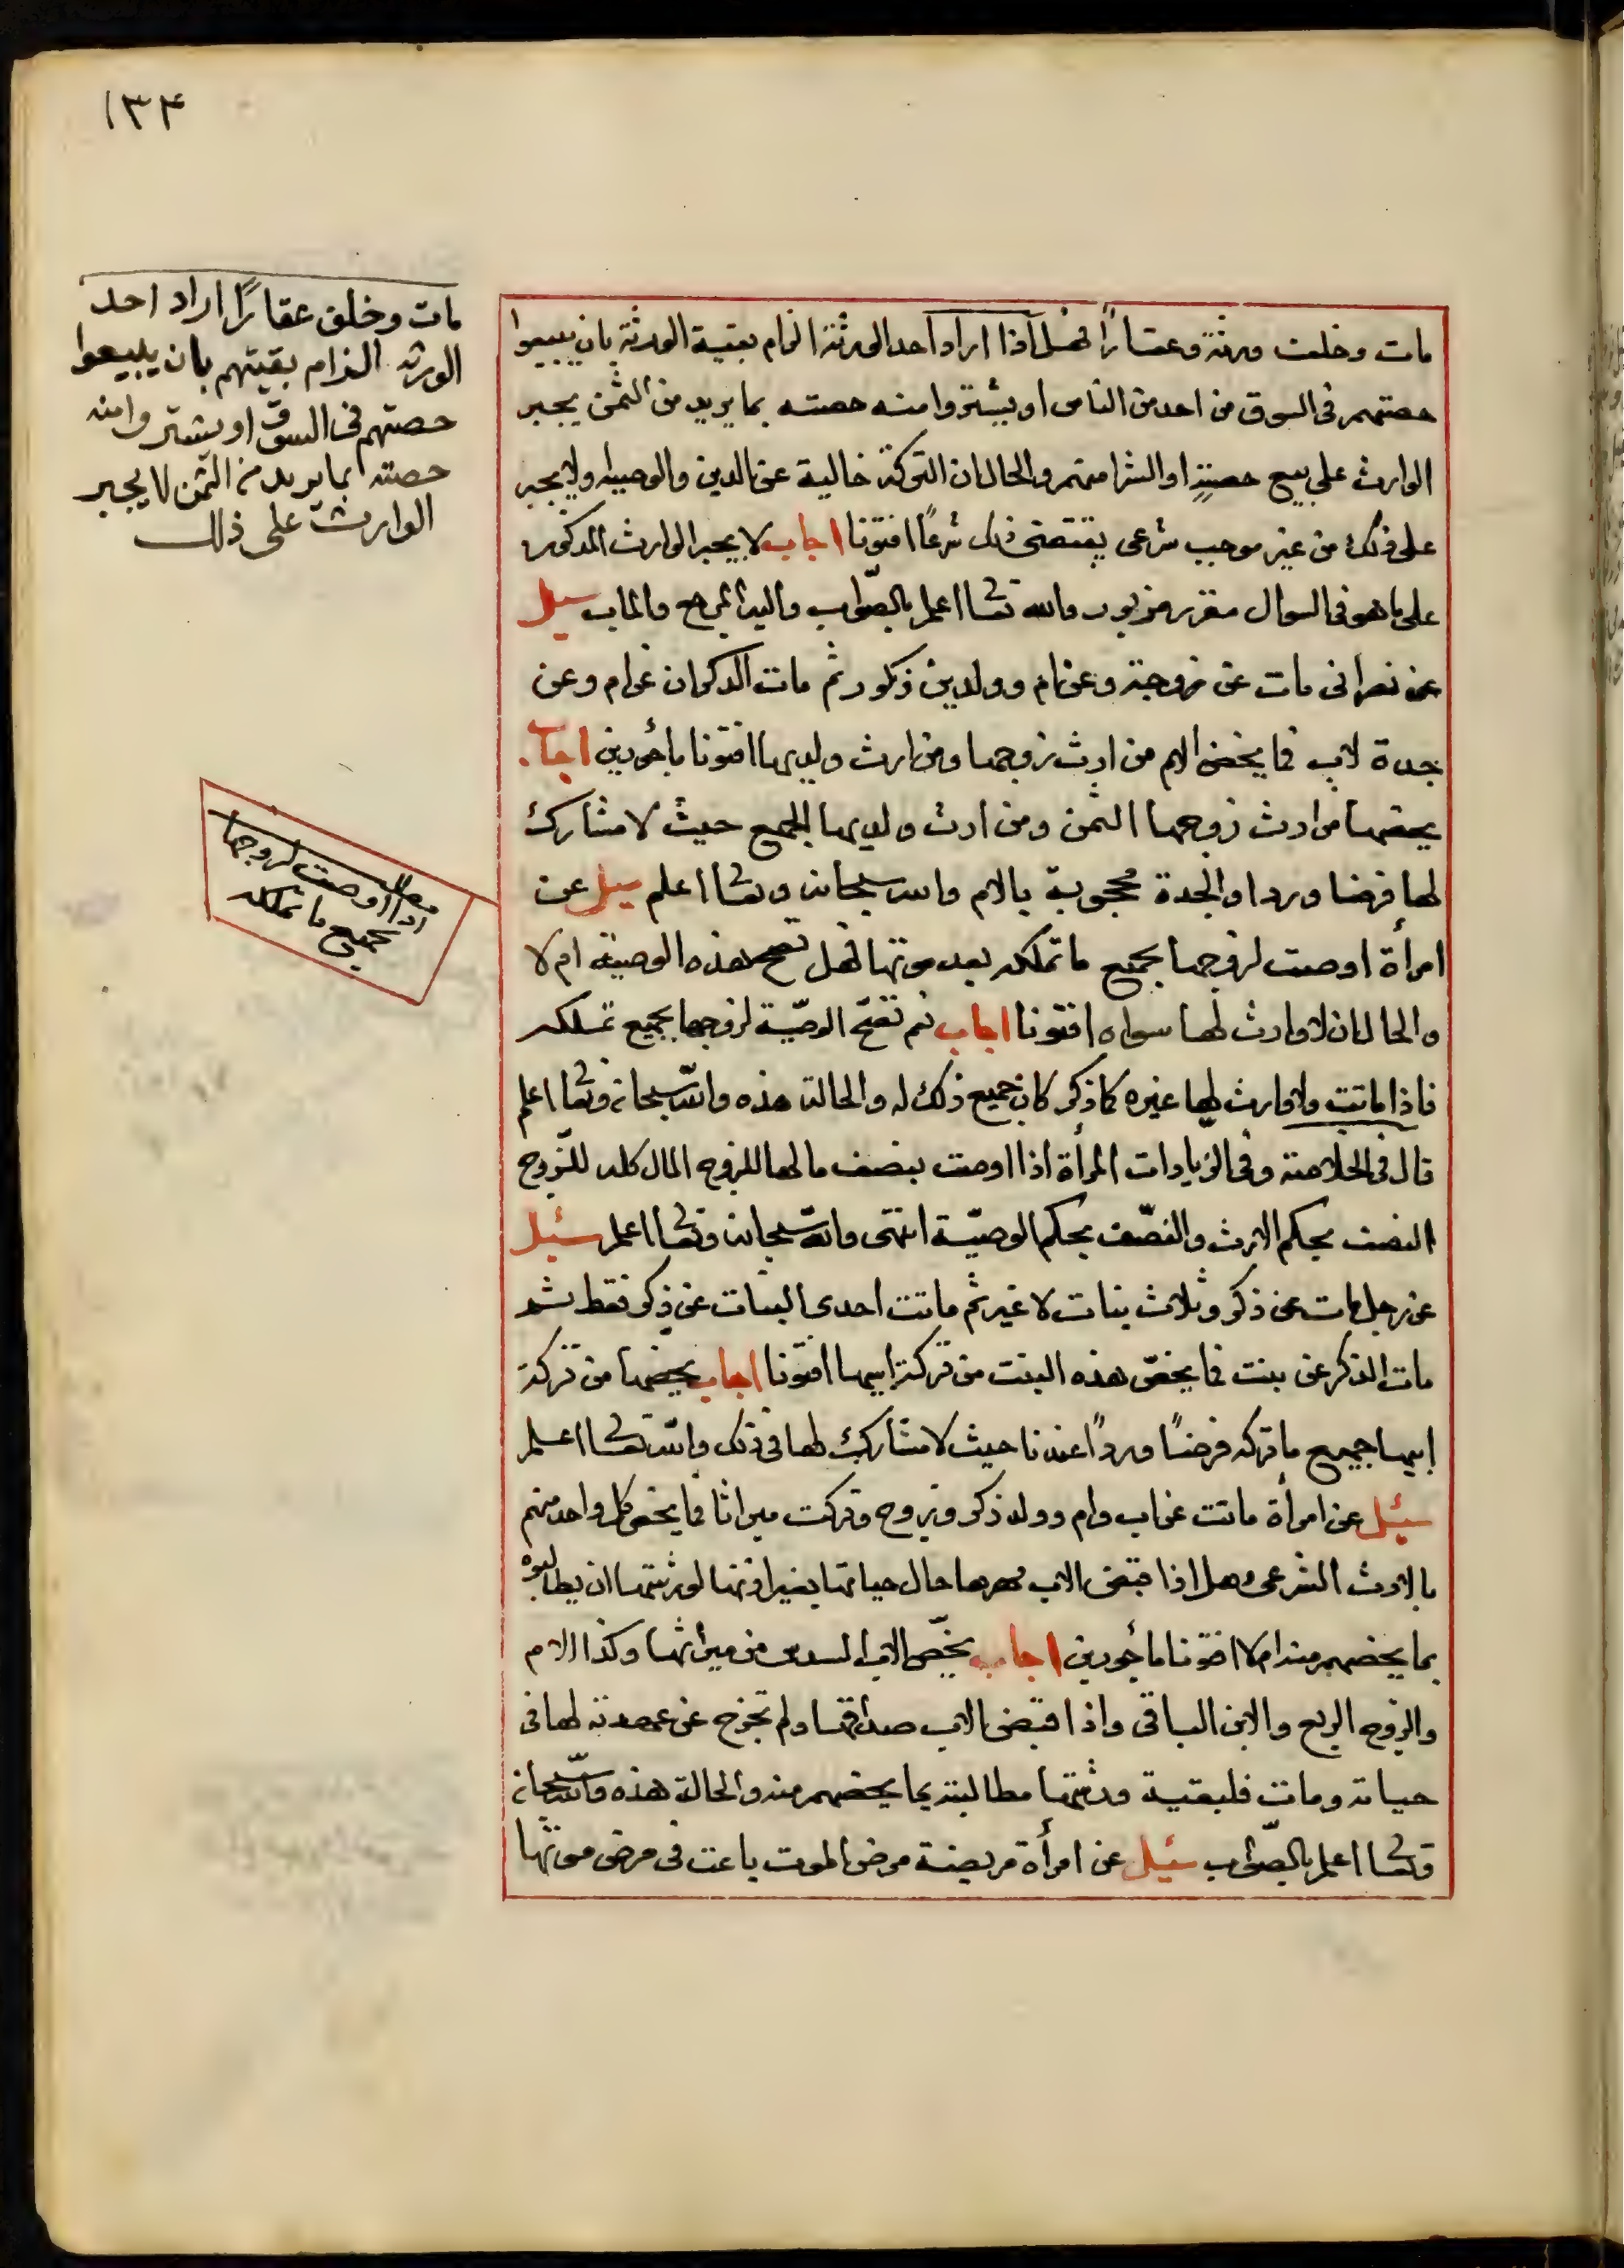 ١٣٤
مات وخلف ورثة وعقارًا فهل اذا اراد احد الورثة الزام بقية الورثة بان يبيعوا
حصتهم فى السوق من احد من الناس او يشتروا منه حصته بما يريد من الثمن يجبر
الوارث على بيع حصته او الشرا منهم والحال ان التركة خالية عن الدين والوصية ولا يجبر
على ذلك من غير موجب شرعى يقتضى ذلك شرعًا افتونا اجاب لا يجبر الوارث المذكور
على ما هو فى السوال مقرر مزبور والله تعا اعلم بالصّواب واليه المرجع والماب سيل
عن نصرانى مات عن زوجة وعن ام وولدين ذكور ثم مات الذكران عن ام وعن
جدة لاب فما يخص الام من ارث زوجها ومن ارث ولديها افتونا مأجورين اجاب
يخصها من ارث زوجها الثمن ومن ارث ولديها الجميع حيث لا مشارك
لها فرضا وردا والجدة محجوبة بالام والله سبحانه وتعا اعلم سيل عن
امرأة اوصت لزوجها بجميع ما تملكه بعد موتها فهل تصح هذه الوصية ام لا
والحال ان لا وارث لها سواه افتونا اجاب نعم تصّح الوصيّة لزوجها بجميع تملكه
فاذا ماتت ولا وارث لها غيره كما ذكر كان جميع ذلك له والحالة هذه والله سبحانه وتعا اعلم
قال فى الخلاصة وفى الزيادات المرأة اذا اوصت بنصف مالها للزوج المال كله للزّوج
النصف بحكم الارث والنصّف بحكم الوصيّة انتهى والله سبحانه وتعا اعلم سئيل
عن رجل مات عن ذكر وثلاث بنات لا غير ثم ماتت احدى البنات عن ذكر فقط ثم
مات الذكر عن بنت فما يخصّ هذه البنت من تركة ابيها افتونا اجاب يخصها من تركة
ابيها جميع ما تركه فرضًا وردًا عندنا حيث لا مشارك لها فى ذلك والله تعا اعلم
سئيل عن امرأة ماتت عن اب وام وولد ذكر وزوج وتركت ميراثا فما يخص كل واحد منهم
بالارث الشرعى وهل اذا قبض الاب مهرها حال حياتها بغير اذنها لورثتها ان يطالبوه
بما يخصهم منه ام لا افتونا مأجورين اجاب يخصّ الاب السدس من ميراثها وكذا الام
والزوج الربع والابن الباقى واذا قبض الاب صداقها ولم تخرج عن عهدته لها فى
حياته ومات فلبقية ورثتها مطالبته بما يخصهم منه والحالة هذه والله سبحانه
وتعا اعلم بالصّواب سئيل عن امرأة مريضة مرض الموت باعت فى مرض موتها
مات وخلف عقارًا اراد احد
الورثه الزام بقيتهم بان يبيعوا
حصتهم فى السوق او يشتروا منه
حصته بما يريد من الثمن لا يجبر
الوارث على ذلك
مطلب
اذا اوصت لزوجها
بجميع ما تملكه